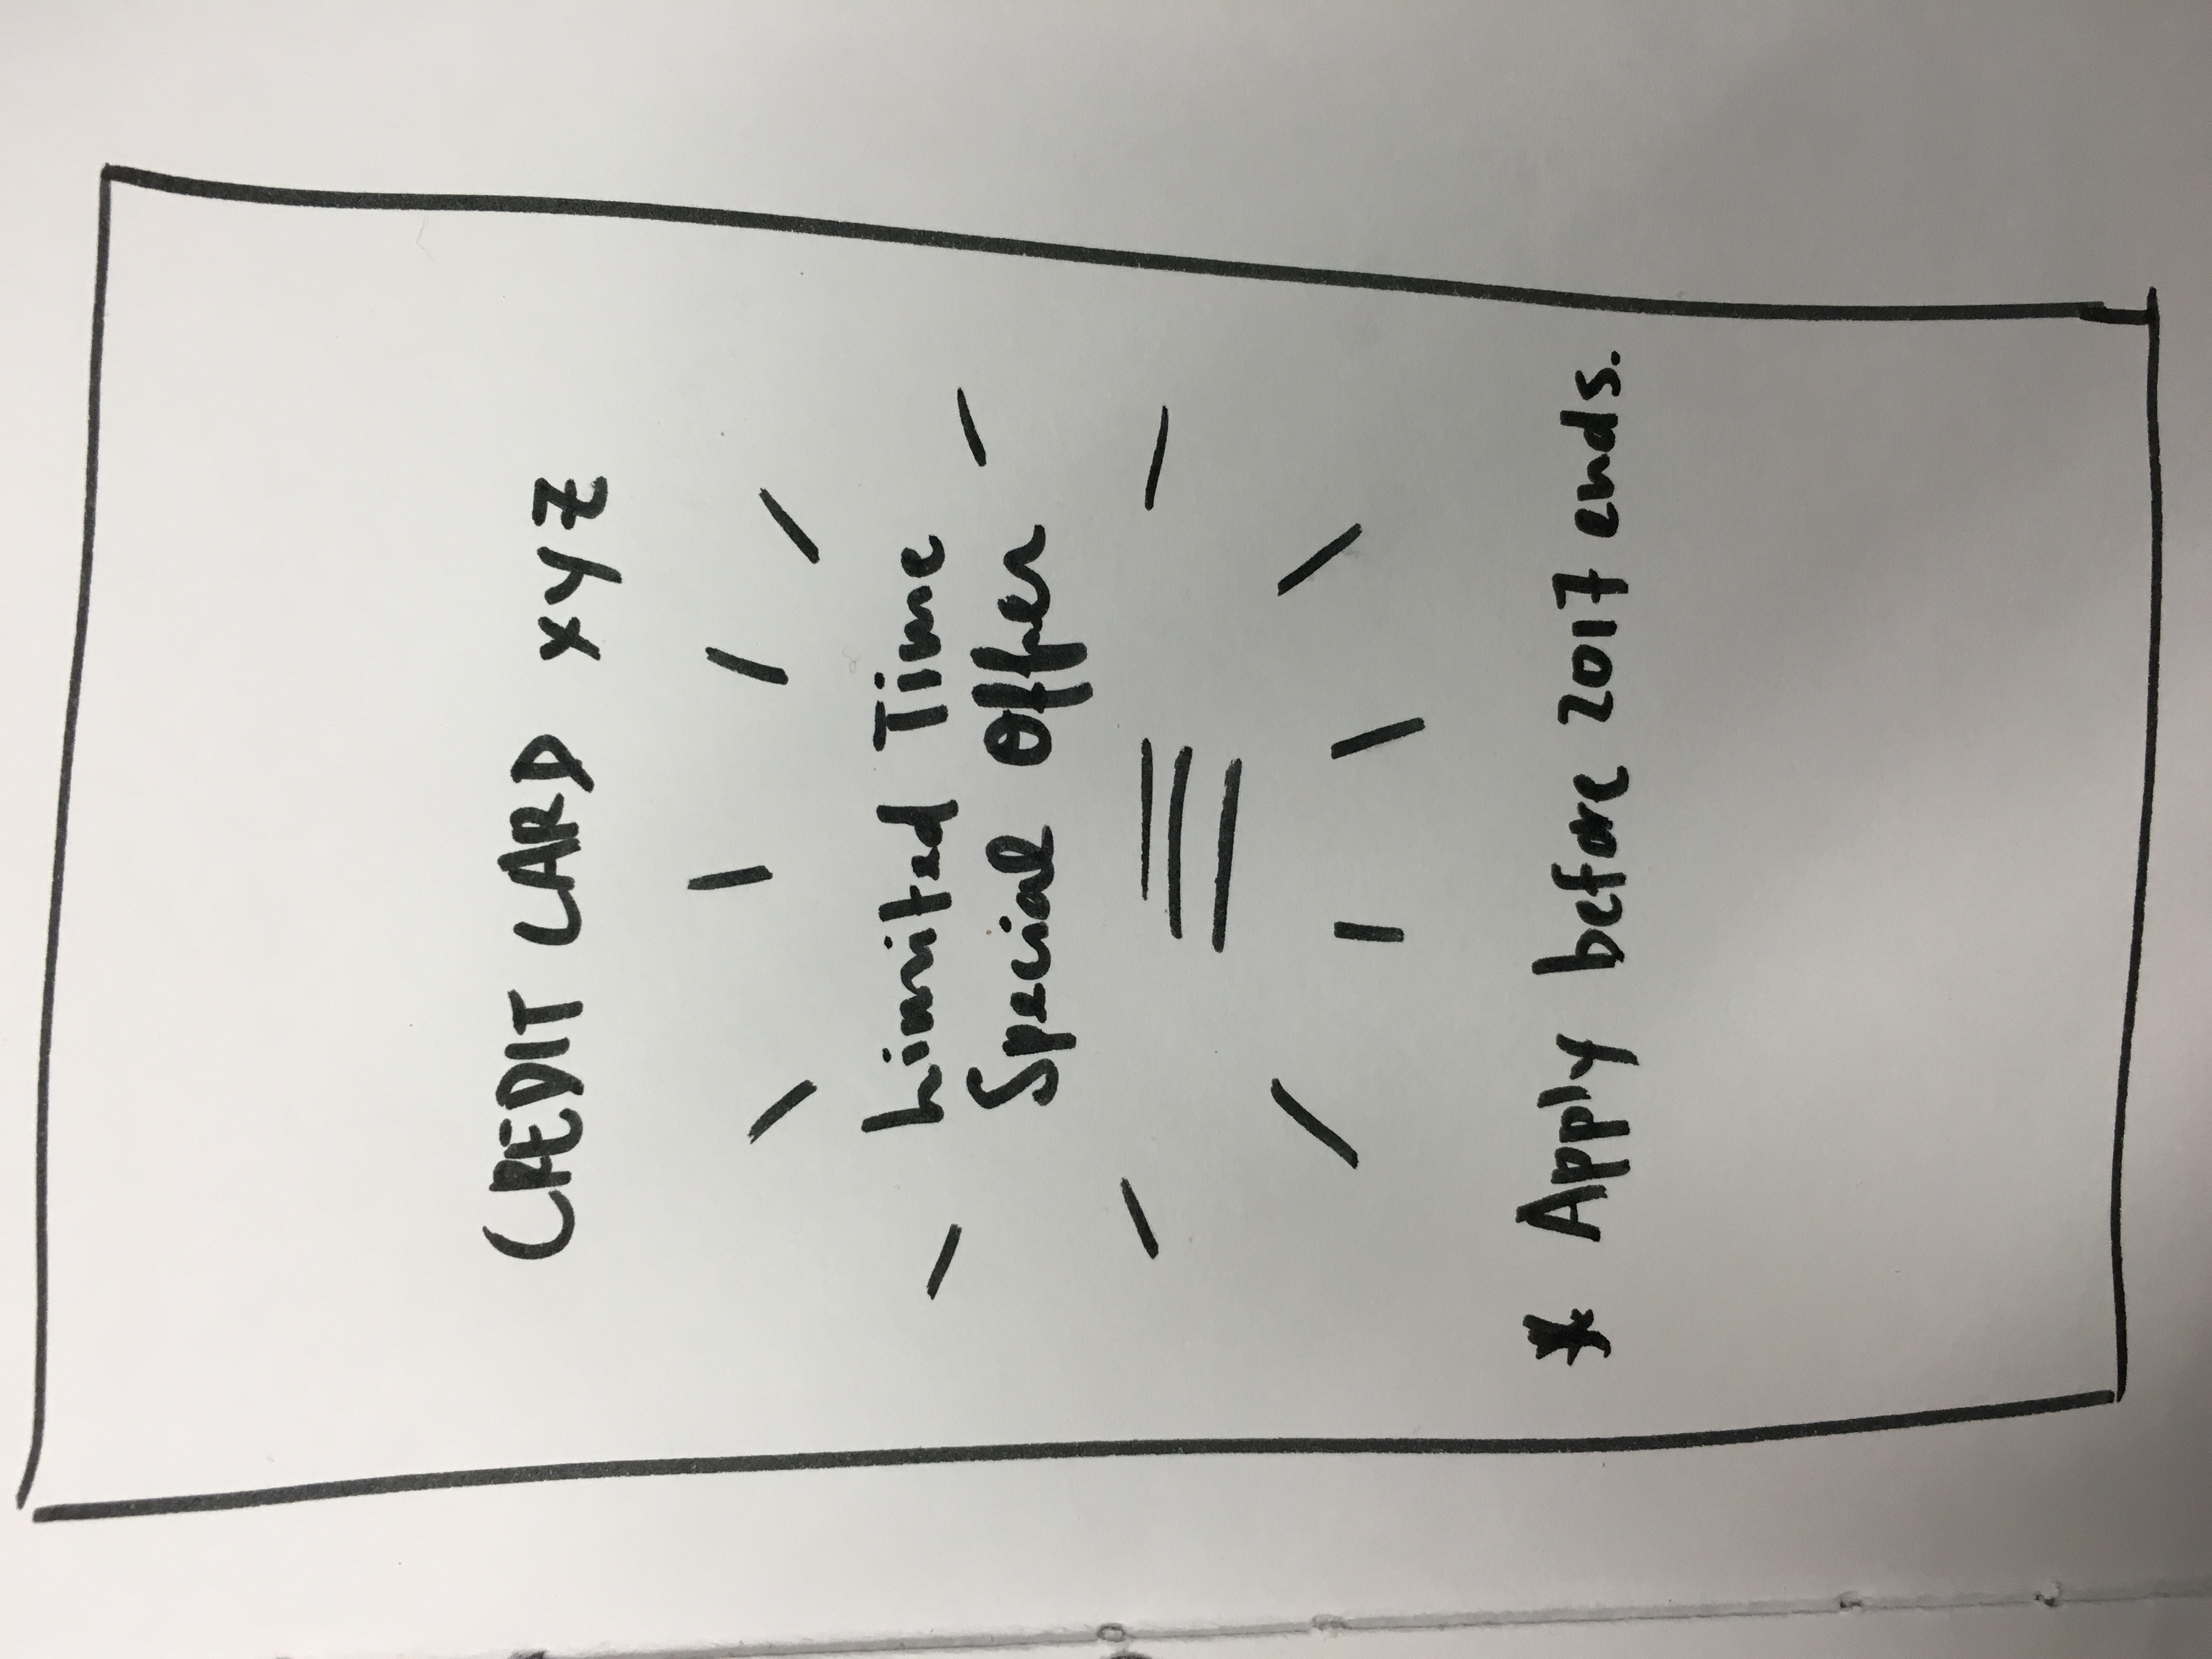 CREDIT CARD xyz
Limited Time
Special Offer
* Apply before 2017 ends.